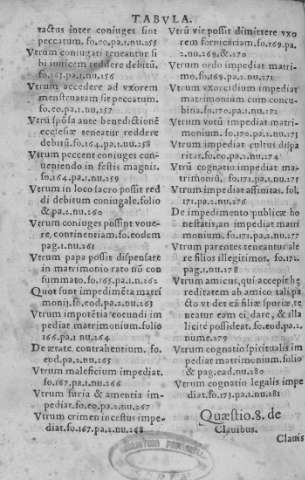 TABVLA.
tactus inter coniuges sint
peccatum. fo.eo.pa.1.nu.155
Vtrum coniugati teneantur si
bi inuicem reddere debitū,
fo.163.pa.1.nu.156
Vtrum accedere ad vxorem
menstruatam sit peccatum.
fo.eo.pa.1.nu.157
Vtrū spōsa ante benedictionē
ecclesiæ teneatur reddere
debitū.fo.164.pa.1.nu.158
Vtrum peccent coniuges con
ueniendo in festis magnis.
fo.164.pa.1.nu.159
Vtrum in loco sacro possit red
di debitum coniugale.folio
&.pa.1.nu.160
Vtrum coniuges possint voue-
re, continentiam.fo.eodem
pag.1.nu.161
Vtrum papa possit dispensare
in matrimonio rato nō con
summato.fo.165.pa.1.n.162
Quot sunt impedimēta matri
monij.fo.eod.pa.2.nu.163
Vtrum impotētia coeundi im
pediat matrimonium.folio
166.pa.1.nu.164
De ætate contrahentium. fo.
eod.pa.2.nu.165
Vtrum maleficium impediat.
fo.167.pa.1.nu.166
Vtrum furia & amentia im-
pediat.fo.eo.pa.2.nu.167
Vtrum crimen incestus impe-
diat.fo.167.pa.2.nu.168
Vtrū vir possit dimittere vxo
rem fornicariam.fo.169.pa.
2.nu.169.&.170
Vtrum ordo impediat matri-
mo.fo.169.pa.2.nu.171
Vtrum vxoricidium impediat
matrimonium cum concu-
bina.fo.170.pa.1.nu.172
Vtrum votū impediat matri-
monium.fo.170.pa.1.nu.173
Vtrum impediat cultus dispa
ritas.fo.eo.pa.1.nu.174
Vtrū cognatio impediat ma-
trimoniū. fo.171.pa.1.nu.175
Vtrum impediat affinitas. fol.
171.pa.2.nu.176
De impedimento publicæ ho
nestatis, an impediat matri
monium.fo.172.pa.1.nu.177
Vtrum parentes teneantur ale
re filios illegitimos. fo.172.
pag.1.nu.178
Vtrum amicus, qui accepit hę
reditatem ab amico tali pa-
cto vt det eā filiæ spuriæ, te
neatur eam ei dare, & illa
licitè possideat.fo.eod.pa.2.
nume.179
Vtrum cognatio spiritualis im
pediat matrimonium.folio
& pag.ead.nu.180
Vtrum cognatio legalis impe
diat.fo.173.pa.2.nu.181
Quæstio.8. de
Clauibus.
Clauis